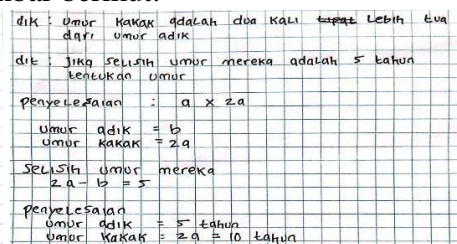 dik : Umur Kakak adalah dua kali lebih tua
dari umur adik
dit : Jika selisih umur mereka adalah 5 tahun
tentukan umur
penyelesaian : a x 2a
Umur adik = b
Umur kakak = 2a
Selisih umur mereka
2a - b = 5
penyelesaian
Umur adik = 5 tahun
Umur kakak = 2a = 10 tahun